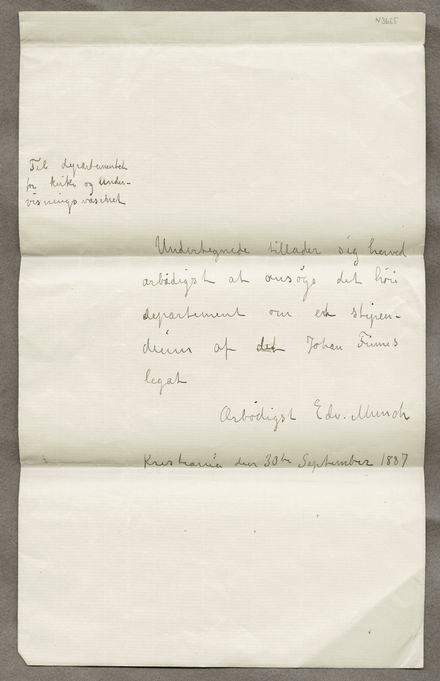 N3665
Til departementet
for kirke og under-
visningsvæsenet
Undertegnede tillader sig herved
ærbødigst at ansøge det høie
departement om et stipen-
dium af det Johan Finnes
legat
Ærbødigst Edv. Munch
Kristiania den 30te September 1887